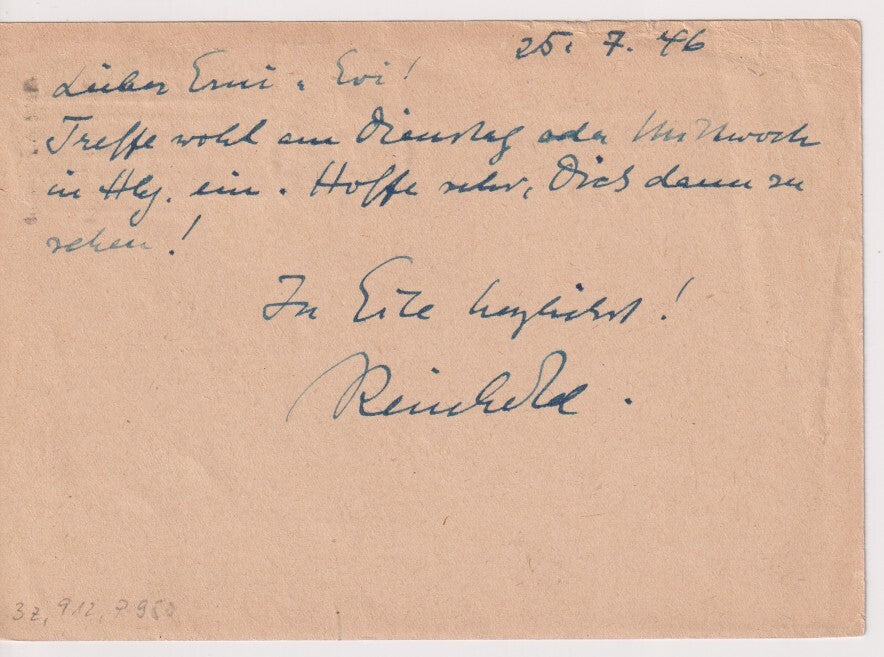 25. 7. 46
Lieber Erni u. Evi!
Treffe wohl am Dienstag oder Mittwoch
in Hbg. ein. Hoffe sehr, Dich dann zu
sehen!
In Eile herzlichst!
Reinhold.
3z, 912, 795